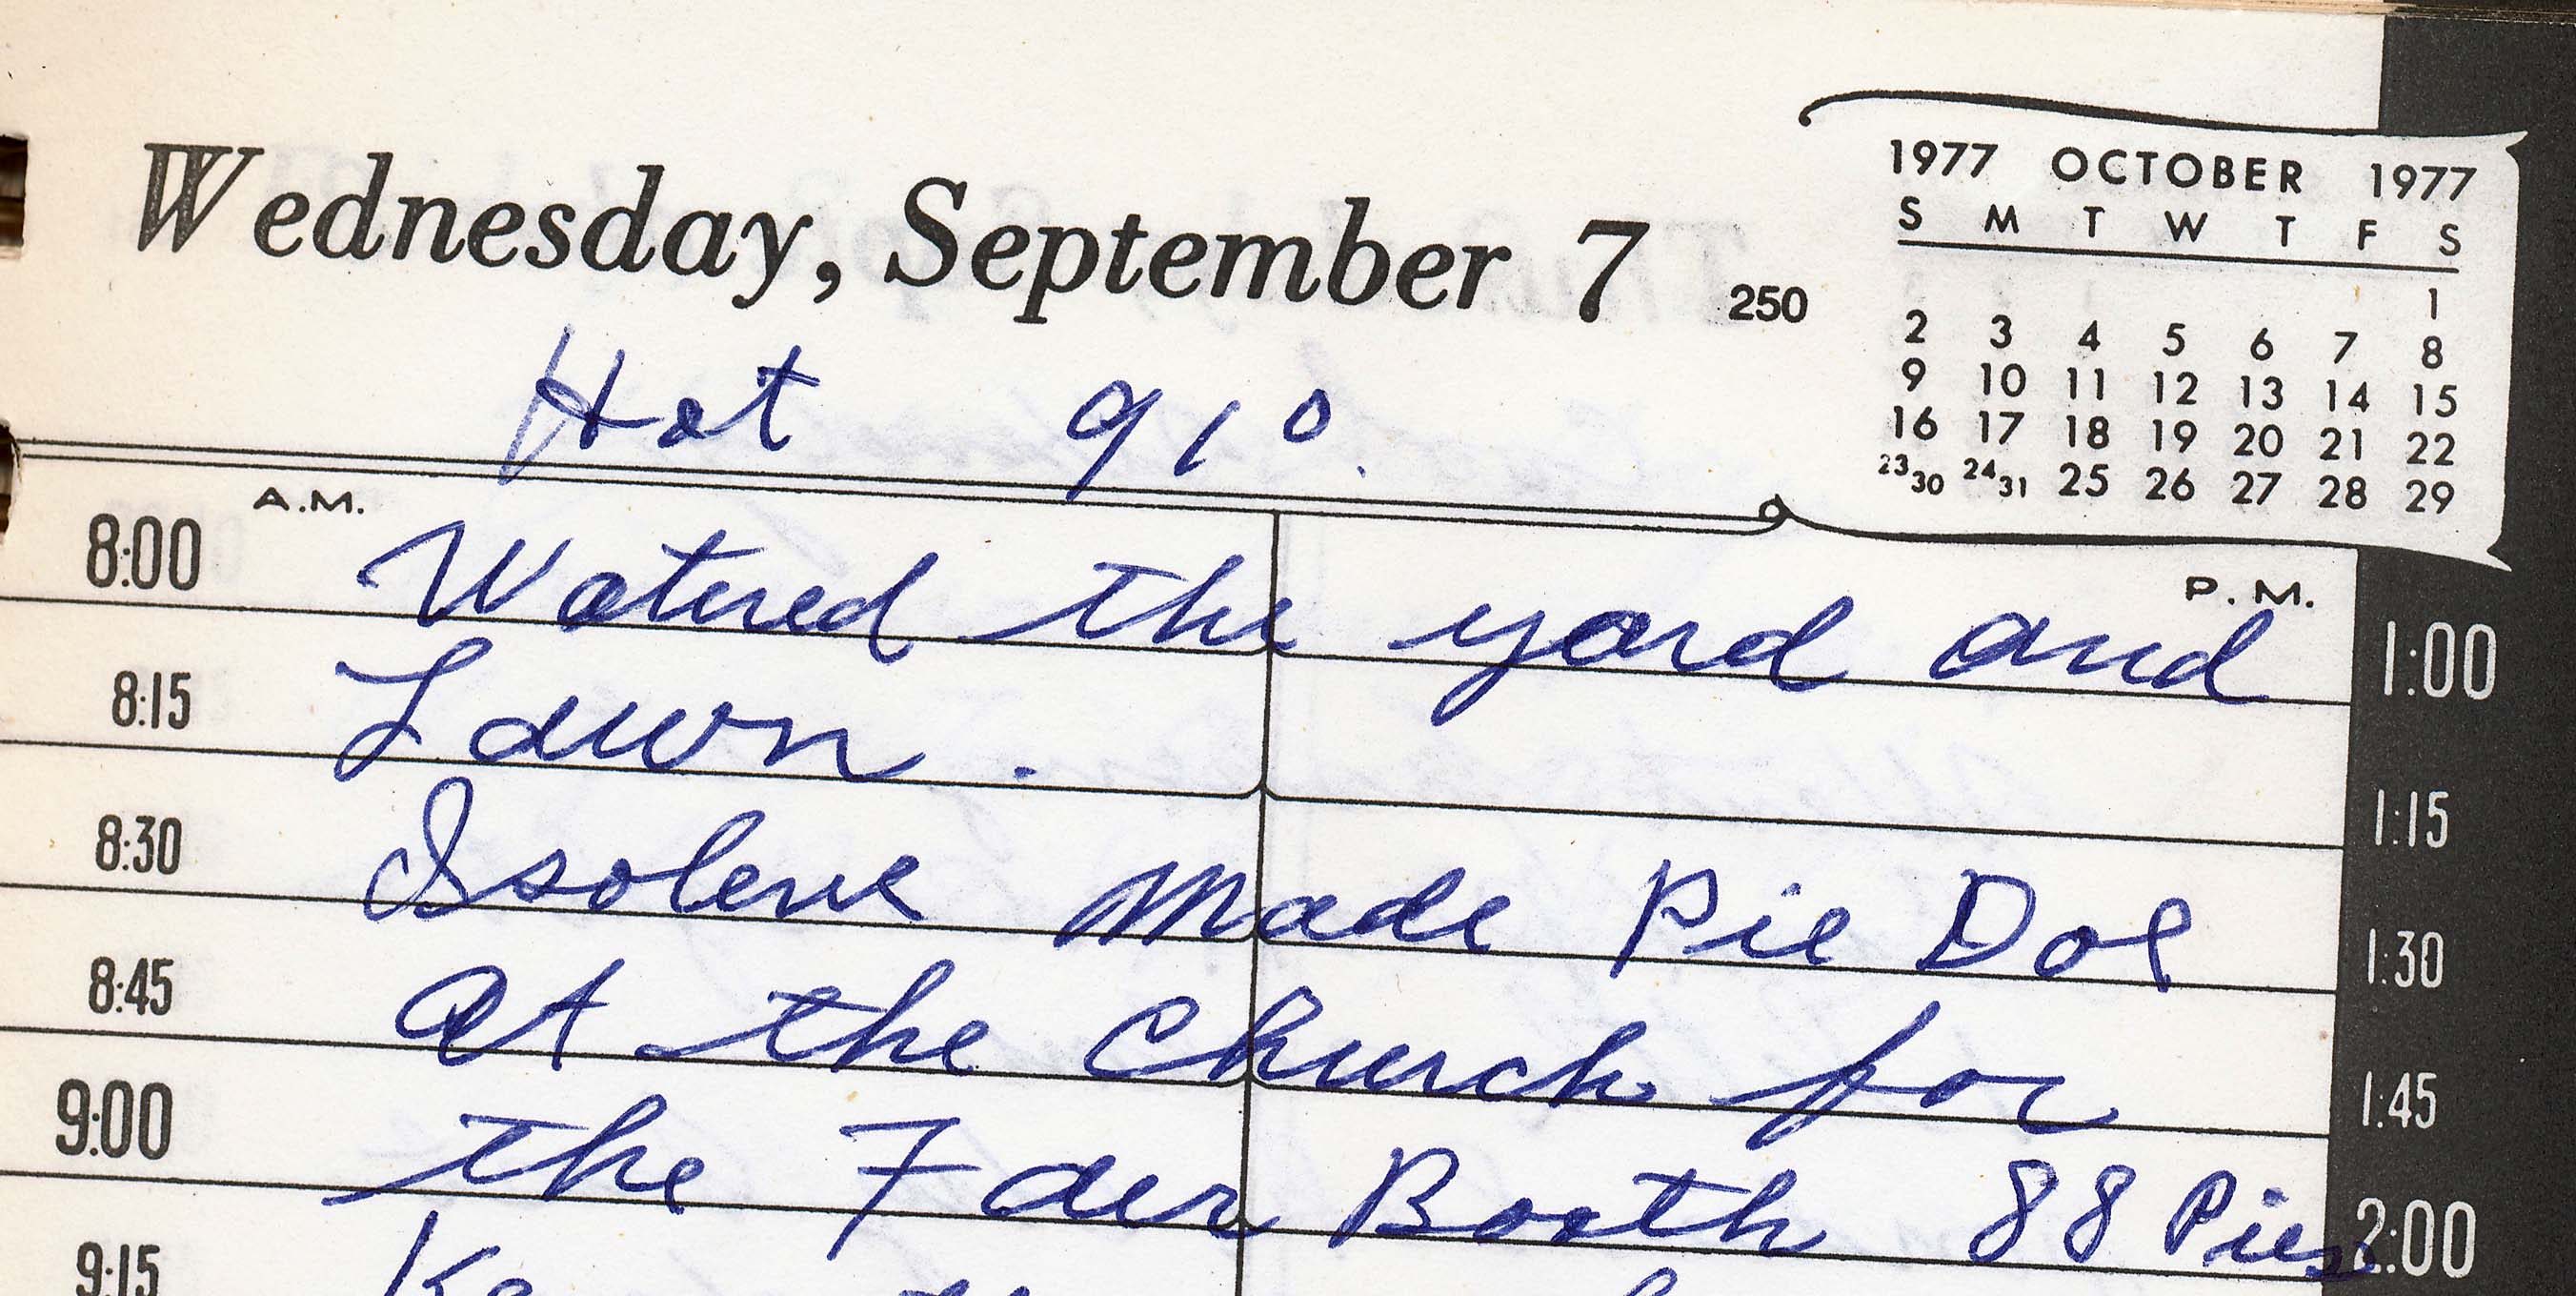 Wednesday, September 7 250
1977 OCTOBER 1977
S M T W T F S
1
2 3 4 5 6 7 8
9 10 11 12 13 14 15
16 17 18 19 20 21 22
23 30 24 31 25 26 27 28 29
Hot 91°.
A.M. P.M.
8:00 Watered the yard and 1:00
8:15 Lawn. 1:15
8:30 Isolene made Pie Doe 1:30
8:45 at the Church for 1:45
9:00 the Faer Booth 88 Pies 2:00
9:15